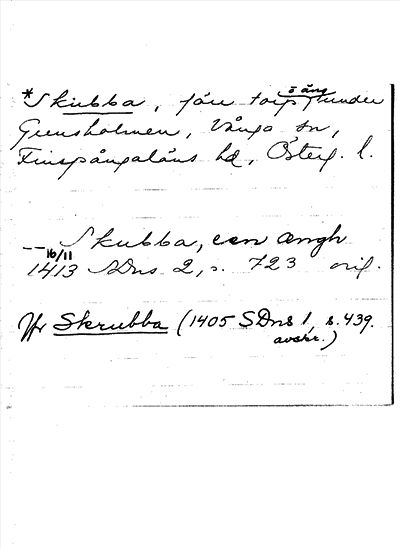 *Skubba, förr torp o äng under
Grensholmen, Vånga sn,
Finspångaläns hd, Österg. l.
-- Skubba, een ængh
16/11 1413 SDns 2, s. 723 orig.
Jfr Skrubba (1405 SDns 1, s. 439.
avskr.)